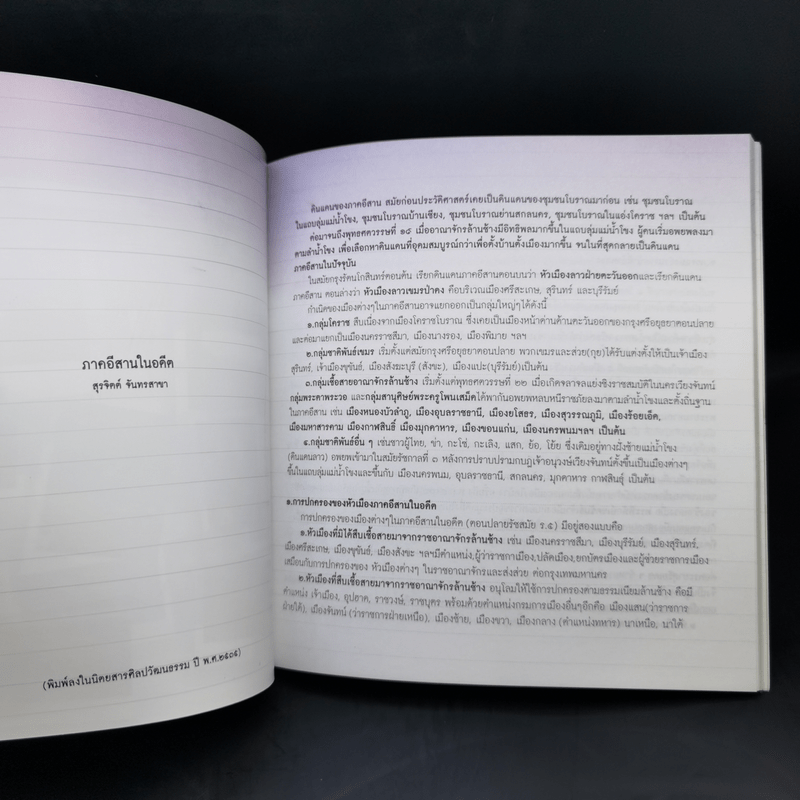 ภาคอีสานในอดีต
สุรจิตต์ จันทรสาขา
(พิมพ์ลงในนิตยสารศิลปวัฒนธรรม ปี พ.ศ.๒๕๓๕)
ดินแดนของภาคอีสาน สมัยก่อนประวัติศาสตร์เคยเป็นดินแดนของชุมชนโบราณมาก่อน เช่น ชุมชนโบราณ
ในแถบลุ่มแม่น้ำโขง, ชุมชนโบราณบ้านเชียง, ชุมชนโบราณย่านสกลนคร, ชุมชนโบราณในแอ่งโคราช ฯลฯ เป็นต้น
ต่อมาจนถึงพุทธศตวรรษที่ ๑๘ เมื่ออาณาจักรล้านช้างมีอิทธิพลมากขึ้นในแถบลุ่มแม่น้ำโขง ผู้คนเริ่มอพยพลงมา
ตามลำน้ำโขง เพื่อเลือกหาดินแดนที่อุดมสมบูรณ์กว่าเพื่อตั้งบ้านตั้งเมืองมากขึ้น จนในที่สุดกลายเป็นดินแดน
ภาคอีสานในปัจจุบัน
ในสมัยกรุงรัตนโกสินทร์ตอนต้น เรียกดินแดนภาคอีสานตอนบนว่า หัวเมืองลาวฝ่ายตะวันออกและเรียกดินแดน
ภาคอีสาน ตอนล่างว่า หัวเมืองลาวเขมรป่าดง คือบริเวณเมืองศรีสะเกษ, สุรินทร์ และบุรีรัมย์
กำเนิดของเมืองต่างๆในภาคอีสานอาจแยกออกเป็นกลุ่มใหญ่ๆได้ดังนี้
๑.กลุ่มโคราช สืบเนื่องจากเมืองโคราชโบราณ ซึ่งเคยเป็นเมืองหน้าด่านด้านตะวันออกของกรุงศรีอยุธยาตอนปลาย
และต่อมาแยกเป็นเมืองนครราชสีมา, เมืองนางรอง, เมืองพิมาย ฯลฯ
๒.กลุ่มชาติพันธ์เขมร เริ่มตั้งแต่สมัยกรุงศรีอยุธยาตอนปลาย พวกเขมรและส่วย(กุย)ได้รับแต่งตั้งให้เป็นเจ้าเมือง
สุรินทร์, เจ้าเมืองขุขันธ์, เมืองสังฆะบุรี (สังขะ), เมืองแปะ(บุรีรัมย์)เป็นต้น
๓.กลุ่มเชื้อสายอาณาจักรล้านช้าง เริ่มตั้งแต่พุทธศตวรรษที่ ๒๒ เมื่อเกิดจลาจลแย่งชิงราชสมบัติในนครเวียงจันทน์
กลุ่มพระตาพระวอ และกลุ่มสานุศิษย์พระครูโพนเสม็ดได้พากันอพยพหลบหนีราชภัยลงมาตามลำน้ำโขงและตั้งถิ่นฐาน
ในภาคอีสาน เช่น เมืองหนองบัวลำภู, เมืองอุบลราชธานี, เมืองยโสธร, เมืองสุวรรณภูมิ, เมืองร้อยเอ็ด,
เมืองมหาสารคาม เมืองกาฬสินธุ์ เมืองมุกดาหาร, เมืองขอนแก่น, เมืองนครพนมฯลฯ เป็นต้น
๔.กลุ่มชาติพันธ์อื่น ๆ เช่นชาวผู้ไทย, ข่า, กะโซ่, กะเลิง, แสก, ย้อ, โย้ย ซึ่งเดิมอยู่ทางฝั่งซ้ายแม่น้ำโขง
(ดินแดนลาว) อพยพเข้ามาในสมัยรัชกาลที่ ๓ หลังการปราบปรามกบฏเจ้าอนุวงษ์เวียงจันทน์ตั้งขึ้นเป็นเมืองต่างๆ
ขึ้นในแถบลุ่มแม่น้ำโขงและขึ้นกับ เมืองนครพนม, อุบลราชธานี, สกลนคร, มุกดาหาร กาฬสินธุ์ เป็นต้น
๑.การปกครองของหัวเมืองภาคอีสานในอดีต
การปกครองของเมืองต่างๆในภาคอีสานในอดีต (ตอนปลายรัชสมัย ร.๕) มีอยู่สองแบบคือ
๑.หัวเมืองที่มิได้สืบเชื้อสายมาจากราชอาณาจักรล้านช้าง เช่น เมืองนครราชสีมา, เมืองบุรีรัมย์, เมืองสุรินทร์,
เมืองศรีสะเกษ, เมืองขุขันธ์, เมืองสังขะ ฯลฯมีตำแหน่ง,ผู้ว่าราชกาเมือง,ปลัดเมือง,ยกบัตรเมืองและผู้ช่วยราชการเมือง
เหมือนกับการปกครองของ หัวเมืองต่างๆ ในราชอาณาจักรและส่งส่วย ต่อกรุงเทพมหานคร
๒.หัวเมืองที่สืบเชื้อสายมาจากราชอาณาจักรล้านช้าง อนุโลมให้ใช้การปกครองตามธรรมเนียมล้านช้าง คือมี
ตำแหน่ง เจ้าเมือง, อุปฮาด, ราชวงษ์, ราชบุตร พร้อมด้วยตำแหน่งกรมการเมืองอื่นๆอีกคือ เมืองแสน(ว่าราชการ
ฝ่ายใต้), เมืองจันทน์ (ว่าราชการฝ่ายเหนือ), เมืองซ้าย, เมืองขวา, เมืองกลาง (ตำแหน่งทหาร) นาเหนือ, นาใต้